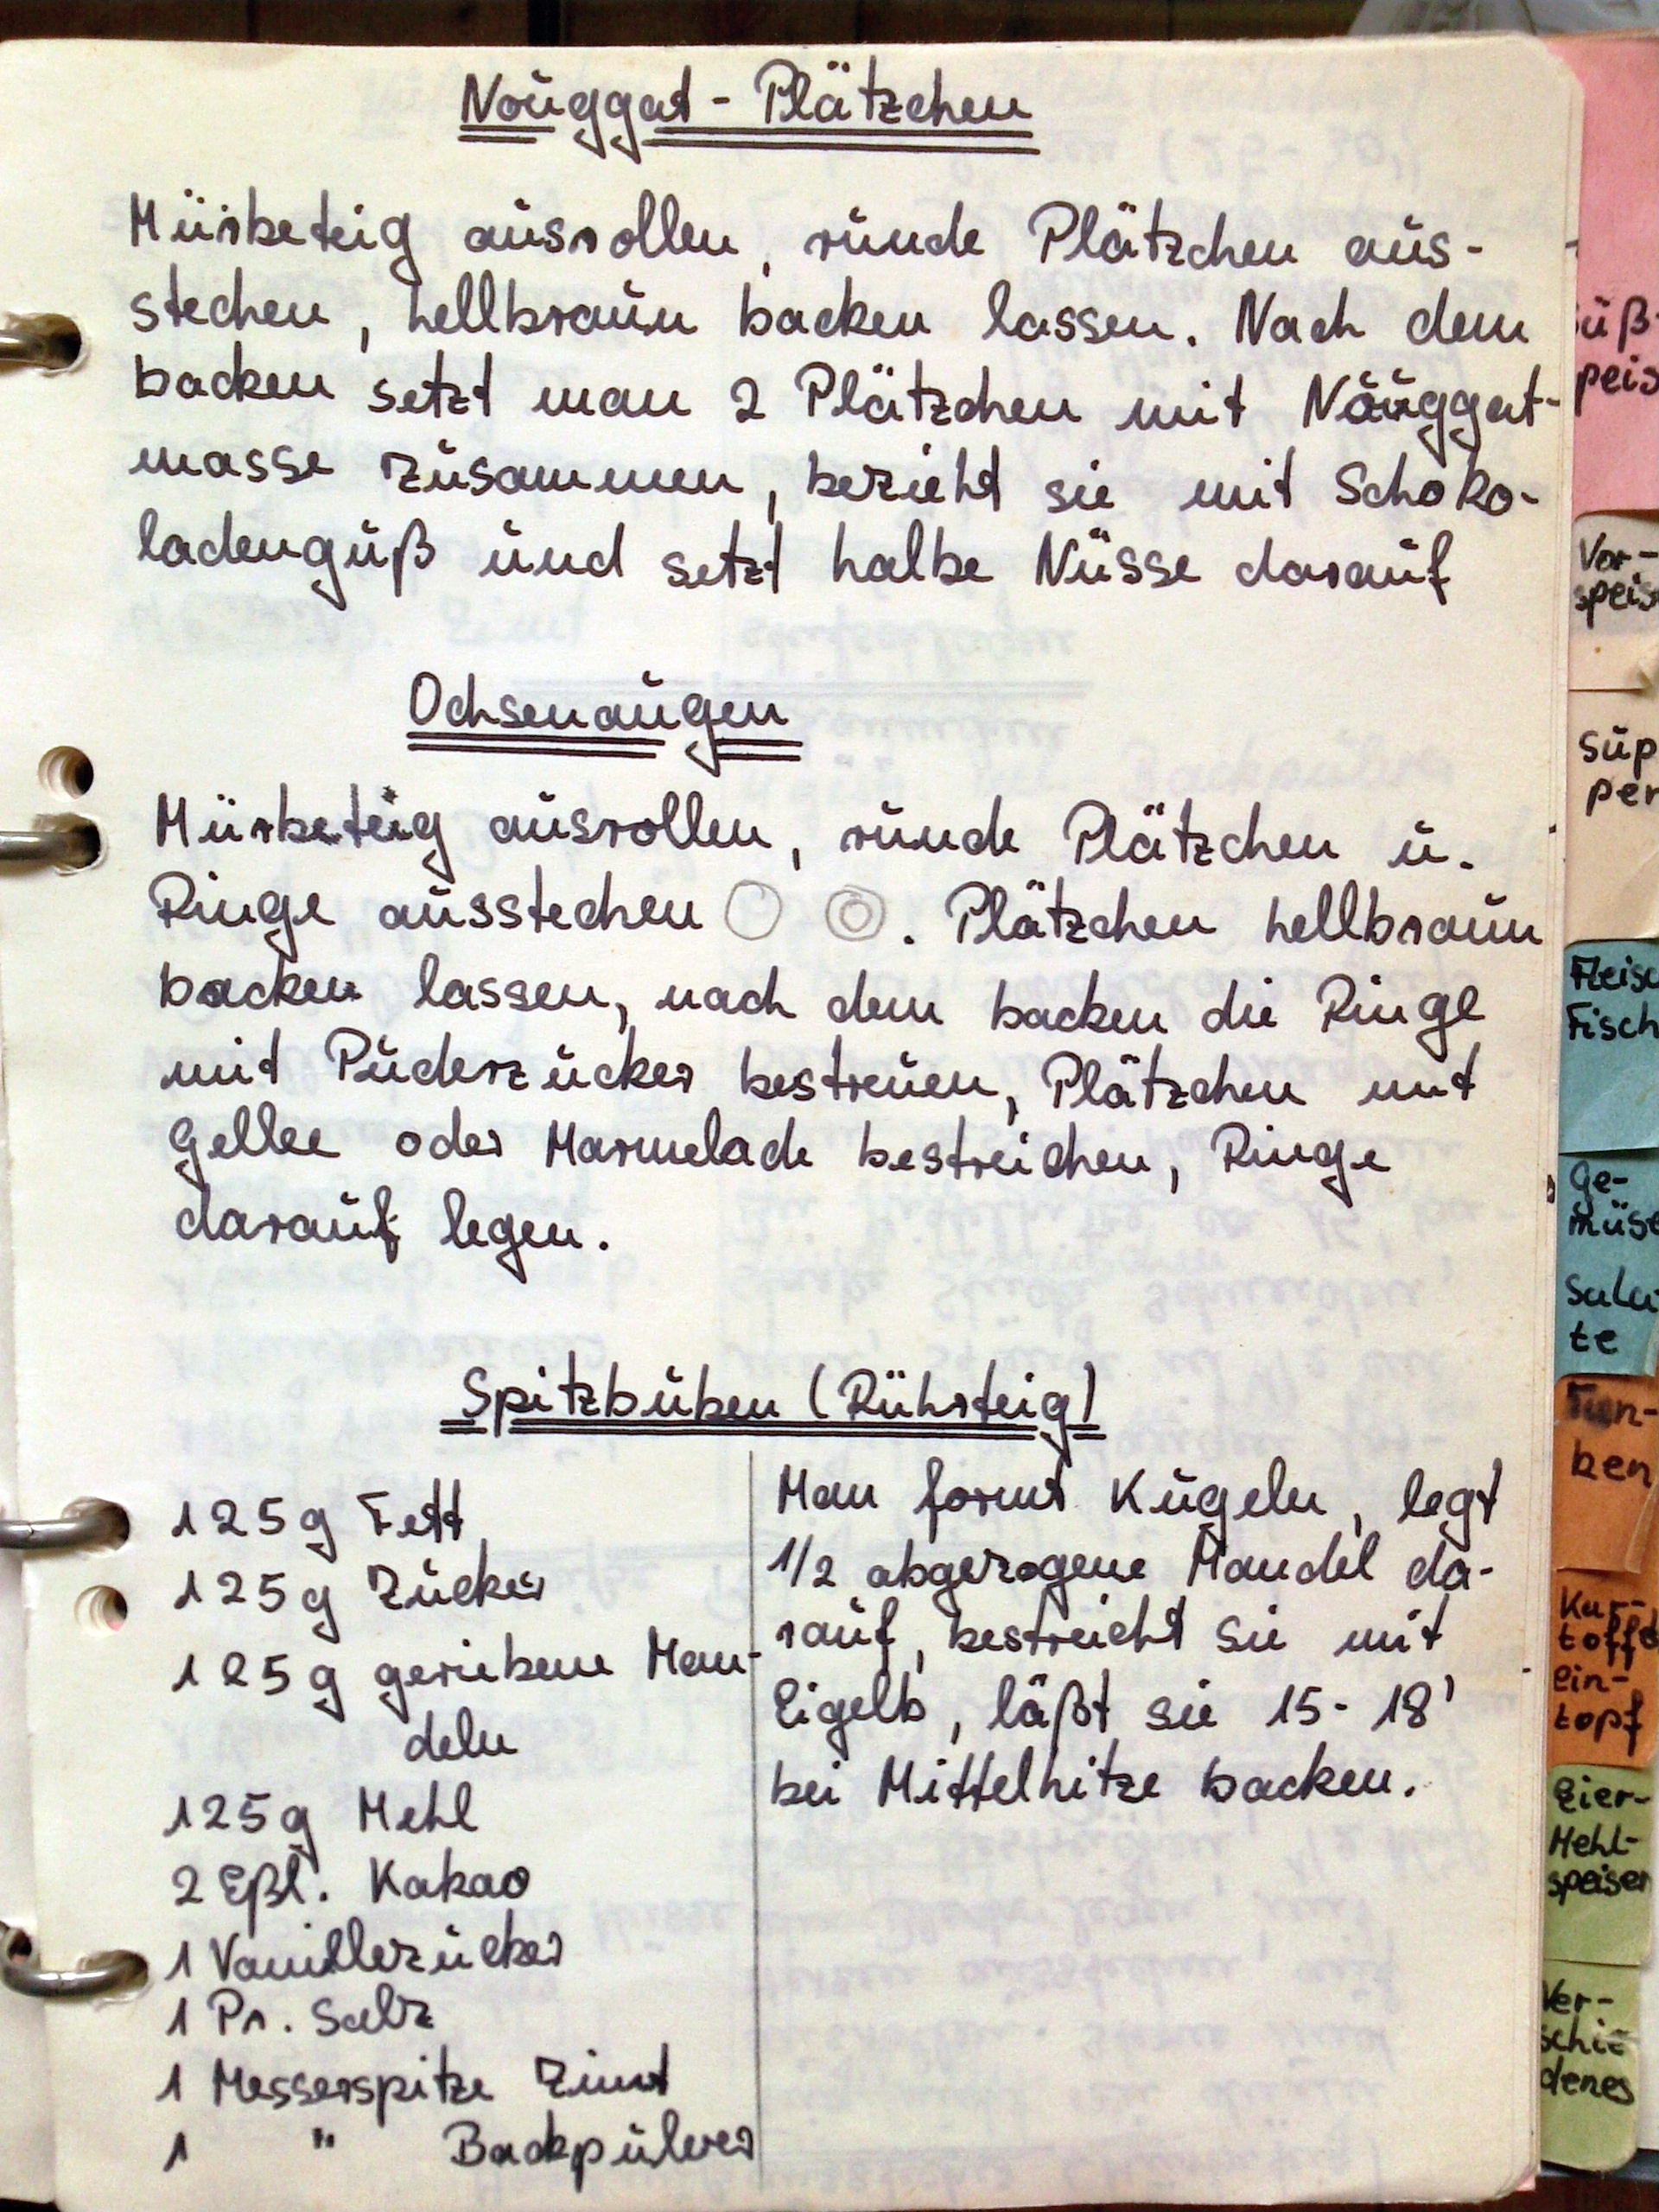 Nouggat - Plätzchen
Mürbeteig ausrollen, runde Plätzchen aus-
stechen, hellbraun backen lassen. Nach dem
backen setzt man 2 Plätzchen mit Nouggat-
masse zusammen, bezieht sie mit Schoko-
ladenguß und setzt halbe Nüsse darauf
Ochsenaugen
Mürbeteig ausrollen, runde Plätzchen u.
Ringe ausstechen . Plätzchen hellbraun
backen lassen, nach dem backen die Ringe
mit Puderzucker bestreuen, Plätzchen mit
Gellee oder Marmelade bestreichen, Ringe
darauf legen.
Spitzbuben (Rührteig)
125g Fett
125g Zucker
125g geriebene Man-
deln
125g Mehl
2 Eßl. Kakao
1 Vanillezucker
1 Pr. Salz
1 Messerspitze Zimt
1 " Backpulver
Man formt Kugeln, legt
1/2 abgezogene Mandel da-
rauf, bestreicht sie mit
Eigelb, läßt sie 15-18'
bei Mittelhitze backen.
üß-
peis
Vor-
speis
Sup
pen
Fleisc
Fisch
Ge-
müse
Sala
te
Tun-
ken
Kar-
toffe
Ein-
topf
Eier-
Mehl-
speisen
Ver-
schie
denes